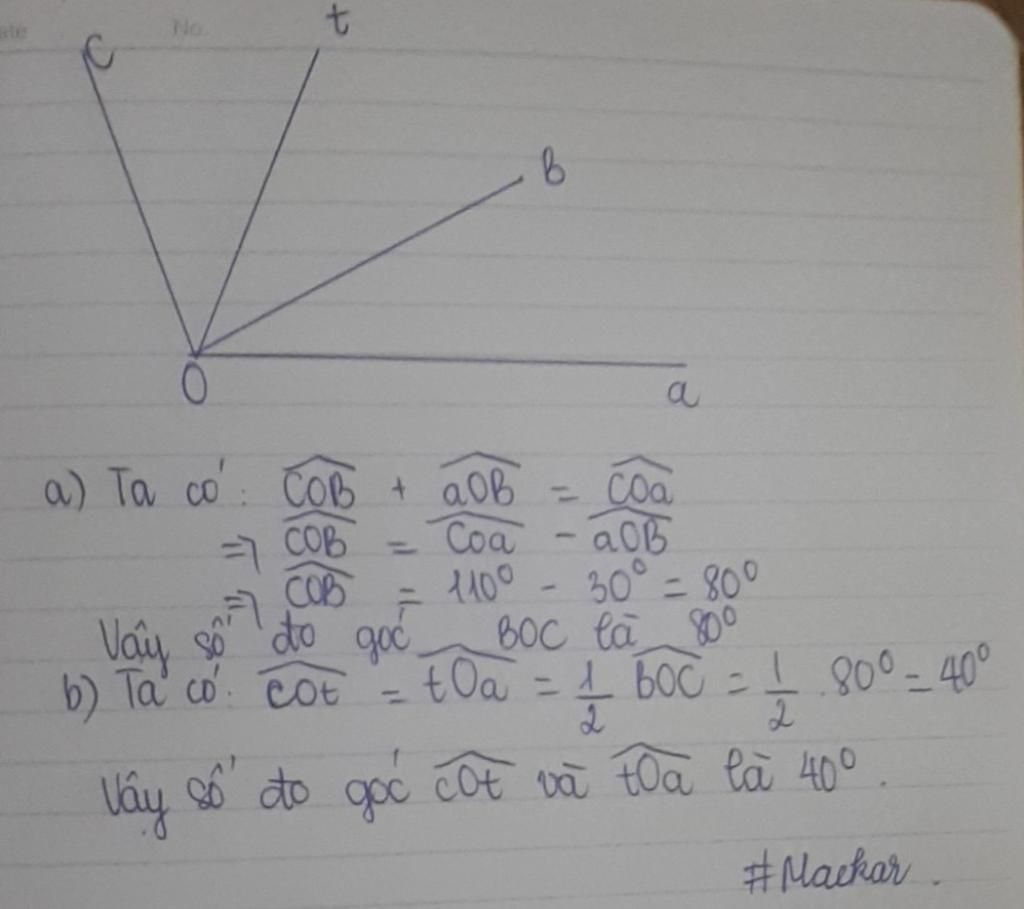 ate No.
C t
B
O a
a) Ta có: \widehat{COB} + \widehat{aOB} = \widehat{COa}
=> \widehat{COB} = \widehat{Coa} - \widehat{aOB}
=> \widehat{COB} = 110° - 30° = 80°
Vậy số đo góc BOC là 80°
b) Ta có: \widehat{cOt} = \widehat{tOa} = \frac{1}{2} \widehat{bOC} = \frac{1}{2} . 80° = 40°
Vậy số đo góc \widehat{cOt} và \widehat{tOa} là 40°.
#Mackar.